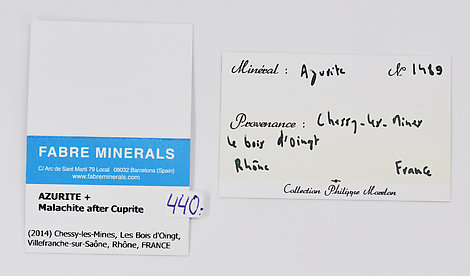 FABRE MINERALS
C/ Arc de Sant Martí 79 Local 08032 Barcelona (Spain)
www.fabreminerals.com
AZURITE +
Malachite after Cuprite
440.-
(2014) Chessy-les-Mines, Les Bois d'Oingt,
Villefranche-sur-Saône, Rhône, FRANCE
Minéral : Azurite N° 1489
Provenance : Chessy-les-Mines
Le bois d'Oingt
Rhône France
Collection Philippe